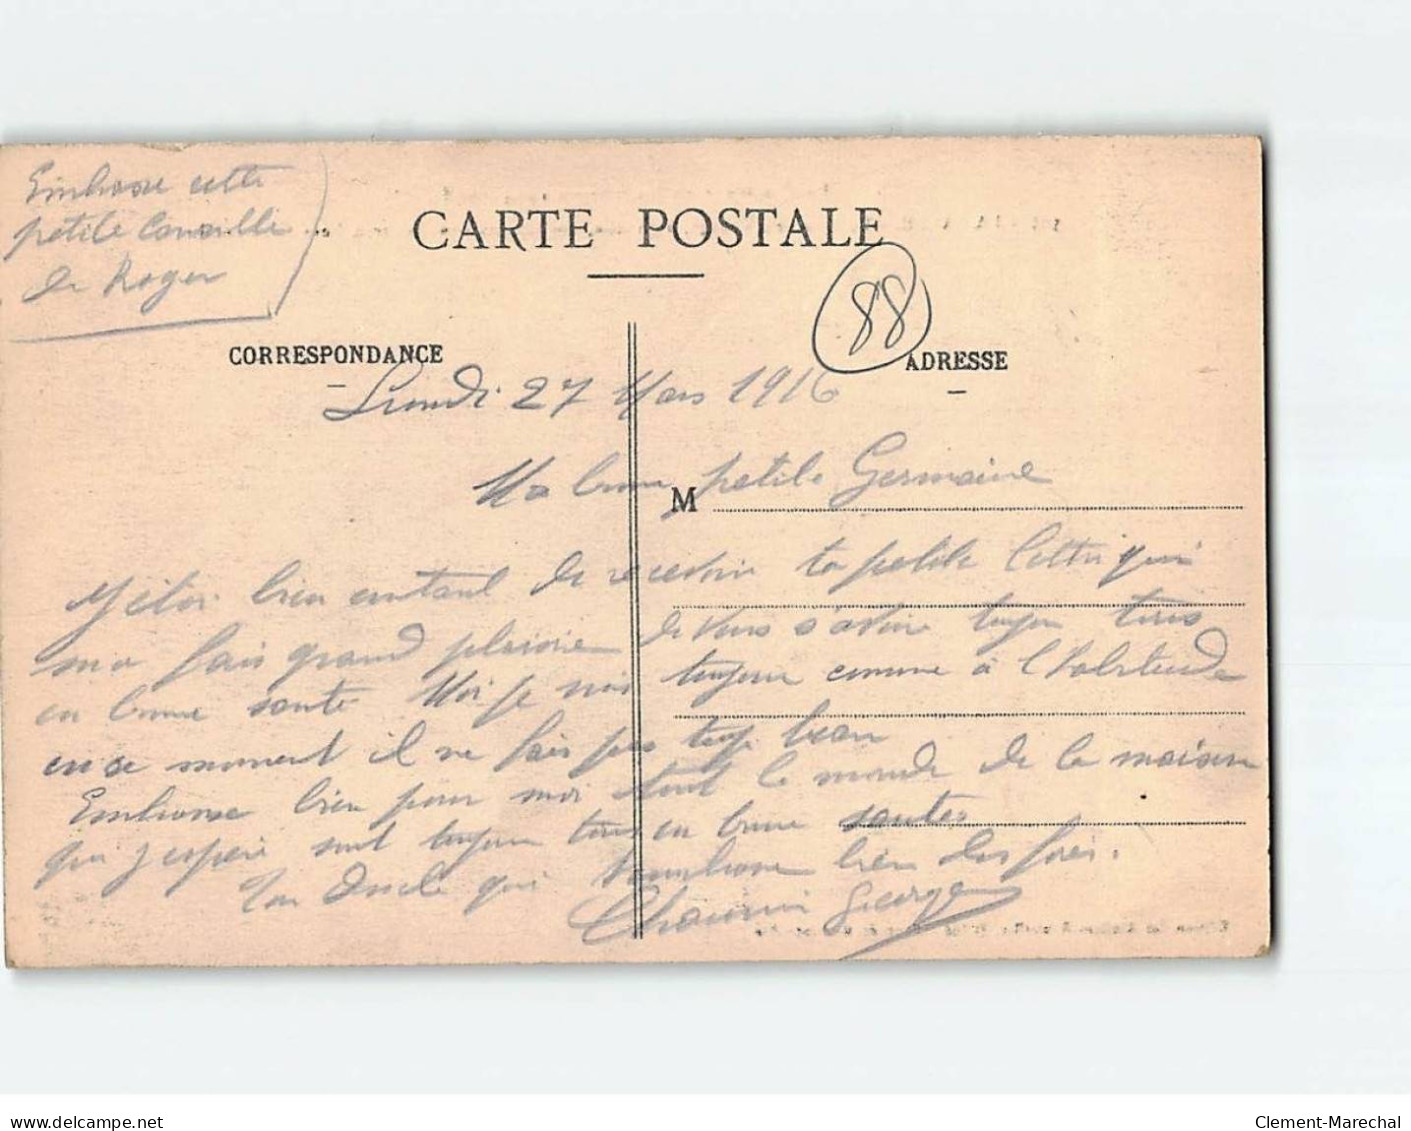 Embrasse cette
petite Canaille
de Roger
CARTE POSTALE
88
CORRESPONDANCE
ADRESSE
Lundi 27 Mars 1916
Ma bonne petite Germaine
M
J'étai bien contant de recevoir ta petite lettre qui
ma fais grand plaisire de vous s'avoire toujou tous
en bonne sante Moi je suis toujour comme à l'habitude
en se moment il ne fais pas trop beau
Embrasse bien pour moi tout le monde de la maison
que j'espère sont toujour tous en bonne santés
Ton Oncle qui t'embrasse bien des fois.
Georges
delcampe.net
Clement-Marechal